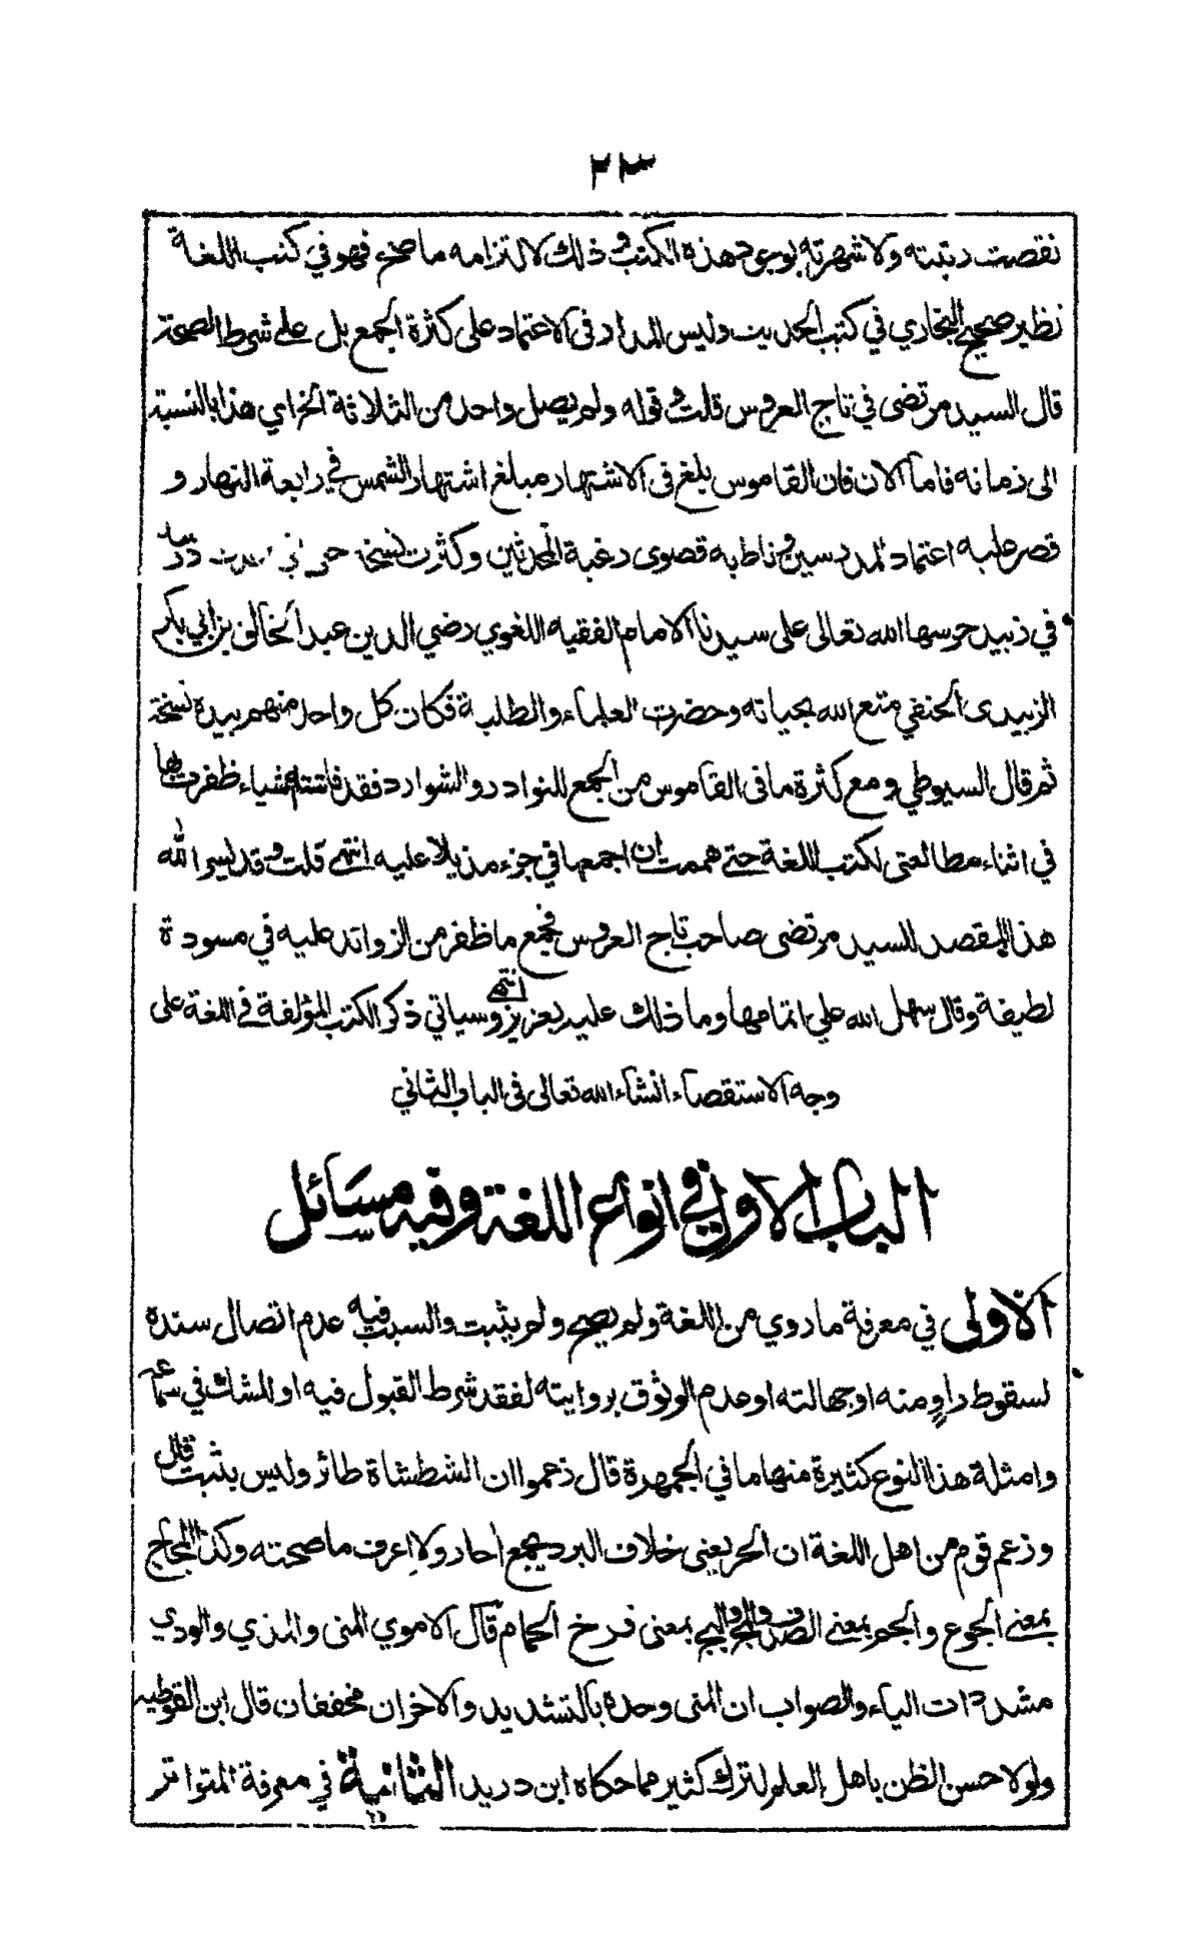 ٢٣
نقصت رتبته ولا شهرته بوجود هذه الكتب وذلك لالتزامه ما صح فهو في كتب اللغة
نظير صحيح البخاري في كتب الحديث وليس المدار في الاعتماد على كثرة الجمع بل على شرط الصحة
قال السيد مرتضى في تاج العروس قلت وقوله ولم يصل واحد من الثلاثة الخ اي هذا بالنسبة
الى زمانه فاما الان فان القاموس بلغ في الاشتهار مبلغ اشتهار الشمس في رابعة النهار و
قصر عليه اعتماد المدرسين وناط به قصوى رغبة المحدثين وكثرت نسخه حتى
في زبيد حرسها الله تعالى على سيدنا الامام الفقيه اللغوي رضي الدين عبد الخالق بن ابي بكر
الزبيدي الحنفي متع الله بحياته وحضرت العلماء والطلبة فكان كل واحد منهم بيده نسخة
ثم قال السيوطي ومع كثرة ما في القاموس من الجمع للنوادر والشوارد فقد فاتته اشياء ظفرت بها
في اثناء مطالعتي لكتب اللغة حتى هممت ان اجمعها في جزء مذيلا عليه انتهى قلت وقد يسر الله
هذا المقصد للسيد مرتضى صاحب تاج العروس فجمع ما ظفر من الزوائد عليه في مسودة
لطيفة وقال سهل الله علي اتمامها وما ذلك عليه بعزيز انتهى وسياتي ذكر الكتب المؤلفة في اللغة على
وجه الاستقصاء انشاء الله تعالى في الباب الثاني
الباب الاول في انواع اللغة وفيه مسائل
الاولى في معرفة ما روي من اللغة ولم يصح ولم يثبت والسبب فيه عدم اتصال سنده
لسقوط راوٍ منه او جهالته او عدم الوثوق بروايته لفقد شرط القبول فيه او للشك في سماعه
وامثلة هذا النوع كثيرة منها ما في الجمهرة قال زعموا ان الشطشاة طائر وليس بثبت قال
وزعم قوم من اهل اللغة ان الحر يعني خلاف البرد يجمع احارر ولا اعرف ما صحته وكذا
بمعنى الجوع والجم بمعنى الصدف والبج بمعنى فرخ الحمام قال الاموي المني والمذي والودي
مشددات الياء والصواب ان المني وحده بالتشديد والاخران مخففان قال ابن القوطية
ولولا حسن الظن باهل العلم لترك كثير مما حكاه ابن دريد الثانية في معرفة المتواتر